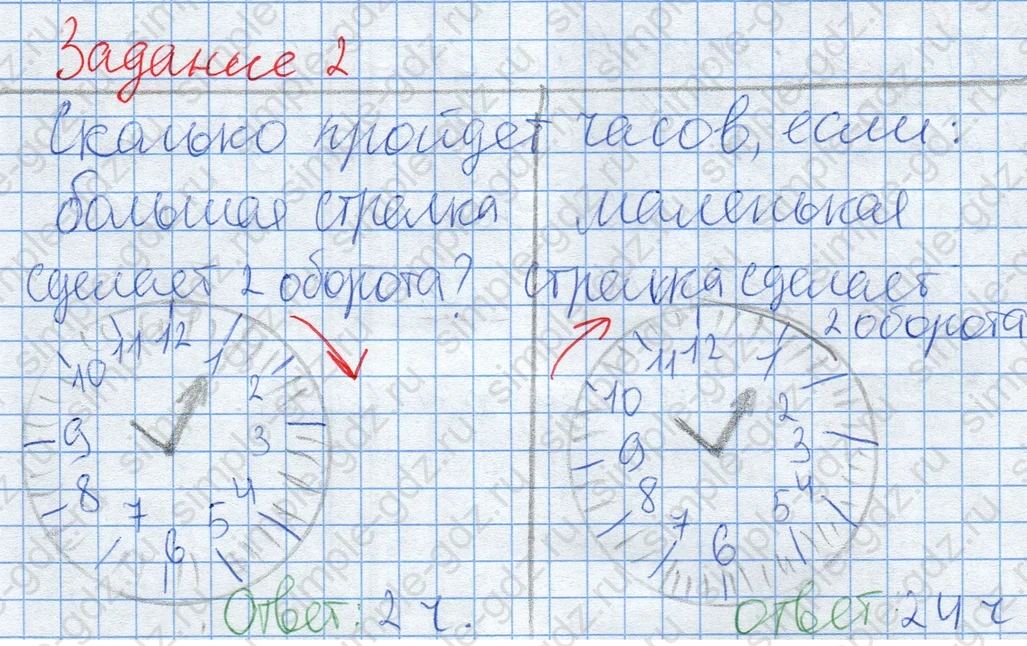 Задание 2
Сколько пройдет часов, если:
большая стрелка
сделает 2 оборота?
11 12 1
10 2
9 3
8 4
7 6 5
Ответ: 2 ч.
маленькая
стрелка сделает
2 оборота
11 12 1
10 2
9 3
8 4
7 6 5
Ответ: 24 ч
simple-gdz.ru